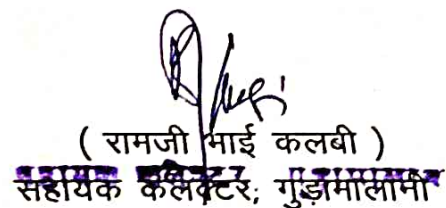 ( रामजी भाई कलबी )
सहायक कलेक्टर, गुड़ामालामी